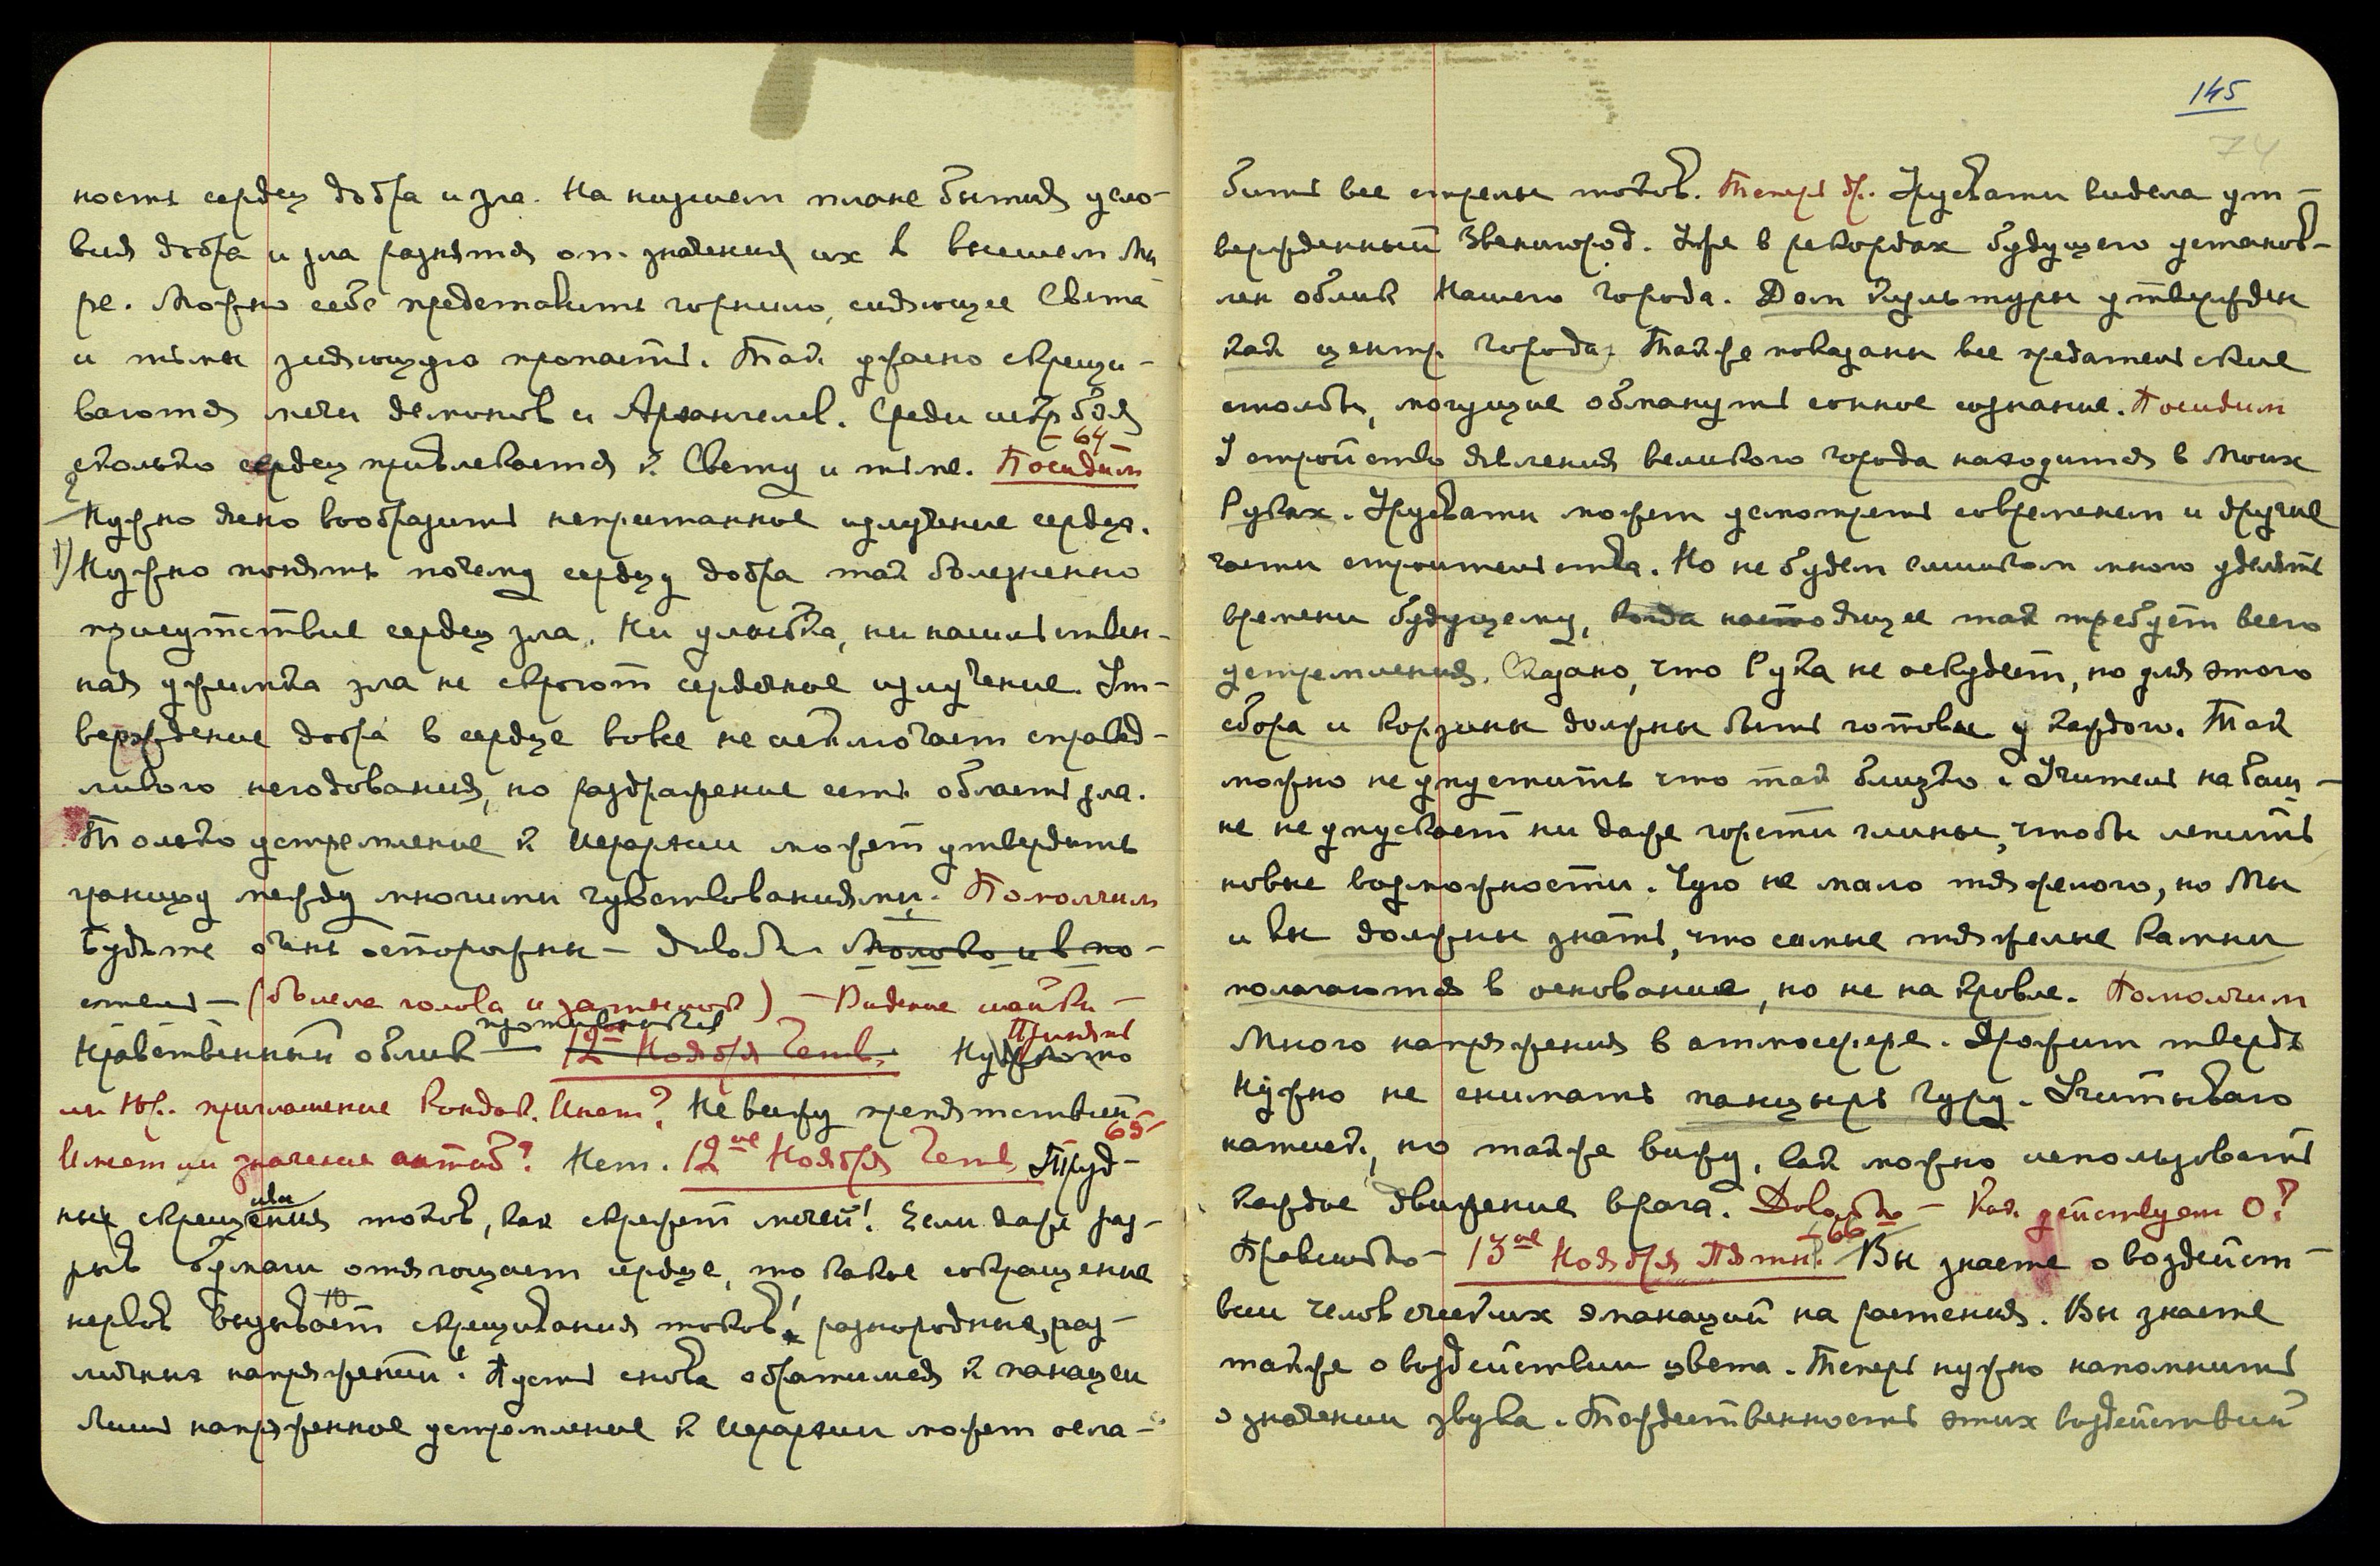 ность сердец добра и зла. На низшем плане бытия усло-
вия добра и зла разнятся от значения их в высшем Ми
ре. Можно себе представить горнило, сияющее Света
и тьмы зияющую пропасть. Так ужасно скрещи-
ваются мечи демонов и Архангелов. Среди искр боя
– 64 –
сколько сердец привлекается к Свету и тьме. Посидим
2
Нужно ясно вообразить непрестанное излучение сердца.
1) Нужно понять почему сердцу добра так болезненно
присутствие сердец зла. Ни улыбка, ни насильствен-
ная ужимка зла не скроют сердечное излучение. Ут-
верждение добра в сердце вовсе не исключает справед-
ливого негодования, но раздражение есть область зла.
Только устремление к Иерархии может утвердить
границу между многими чувствованиями. Помолчим
Будьте очень осторожны – дабы Молоко и в по-
стель – (болела голова и затылок) – Видение шайки –
противников Принять
Нравственный облик – 12ое Ноября Четв. Нужно
ли Юр. приглашение Кондак. Инст? Не вижу препятствий
65
Имеет ли значение актив? Нет. 12ое Ноября Четв Труд-
ива
ны скрещения токов, как скрежет мечей! Если даже раз-
рыв бумаги отягощает сердце, то какое сокращение
ю
нервов вызывает скрещивания токов! разнородные, раз-
личных напряжений! Пусть снова обратимся к панацеи
Лишь напряженное устремление к Иерархии может осла-
145
74
бить все стрелы токов. Теперь др. Урусвати видела ут-
вержденный Звенигород. Уже в рекордах будущего установ-
лен облик Нашего города. Дом Культуры утвержден
как центр города. Также показаны все предательские
столбы, могущие обмануть сонное сознание. Посидим
Устройство явления великого города находится в Моих
Руках. Урусвати может усмотреть современем и другие
части строительства. Но не будем слишком много уделять
времени будущему, когда настоящее так требует всего
устремления. Сказано, что Рука не оскудеет, но для этого
сбора и корзины должны быть готовы у каждого. Так
можно не упустить что так близко. Учитель на баш-
не не упускает ни даже горсти глины, чтобы лепить
новые возможности. Чую не мало тяжелого, но Мы
и вы должны знать, что самые тяжелые камни
полагаются в основание, но не на кровле. Помолчим
Много напряжения в атмосфере. Дрожит твердь
Нужно не снимать панцырь Гуру. Учитываю
натиск, но также вижу, как можно использовать
каждое движение врага. Довольно – Как действует О?
– 66 –
Превысоко – 13ое Ноября Пятн. Вы знаете о воздейст-
вии человеческих эманаций на растения. Вы знаете
также о воздействии цвета. Теперь нужно напомнить
о значении звука. Тождественность этих воздействий